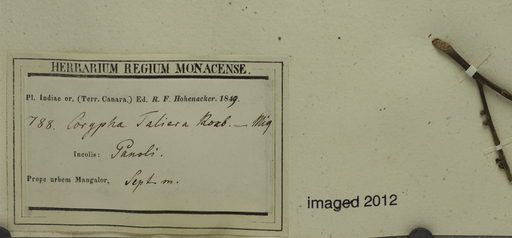 HERBARIUM REGIUM MONACENSE.
Pl. Indiae or. (Terr. Canara.) Ed. R. F. Hohenacker. 1849.
788. Corypha Taliera Roxb. — Miq
Incolis: Panoli.
Prope urbem Mangalor, Sept. m.
imaged 2012